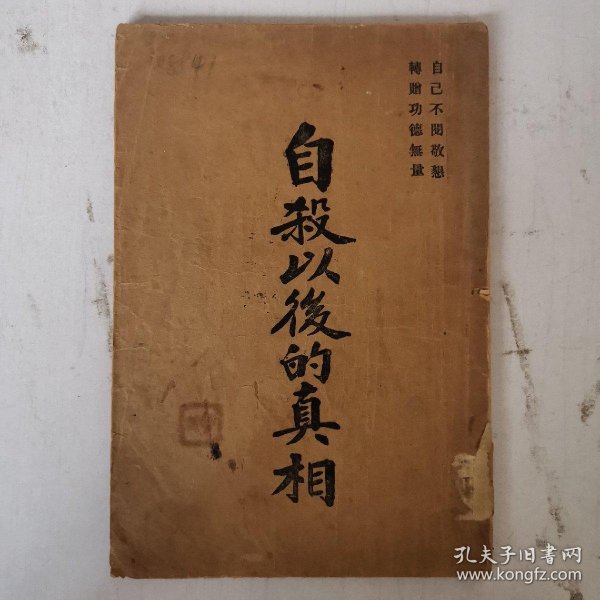 自己不閱敬懇
轉贈功德無量
自殺以後的真相
孔夫子旧书网
www.kongfz.com